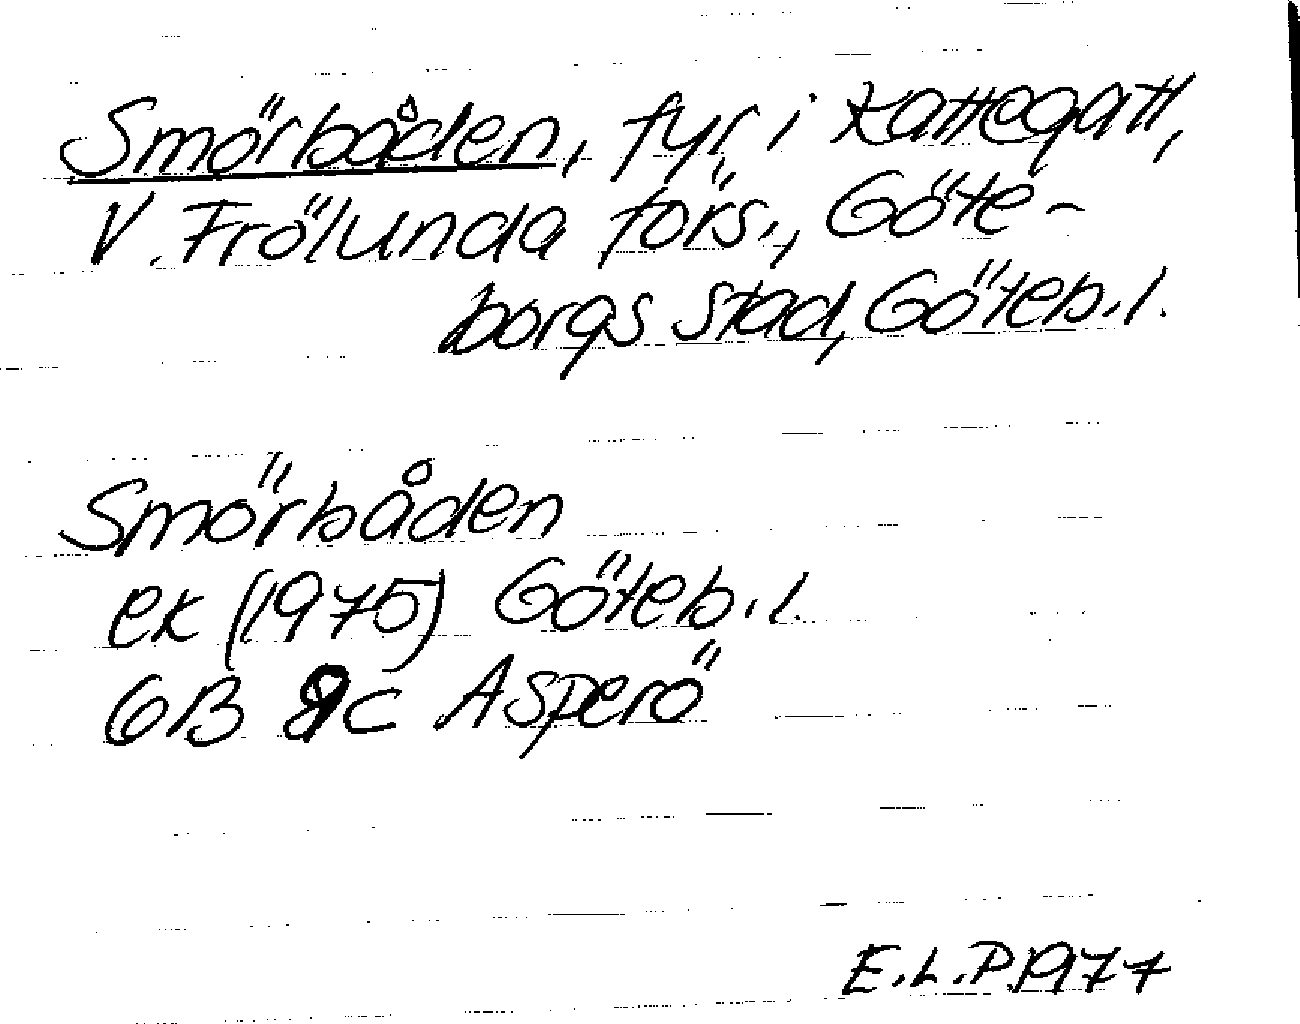 Smörbåden, fyr i Kattegatt,
V. Frölunda förs., Göte-
borgs stad, Göteb.l.
Smörbåden
ek (1975) Göteb.l.
6B 9c Asperö
E.L.P. 1977